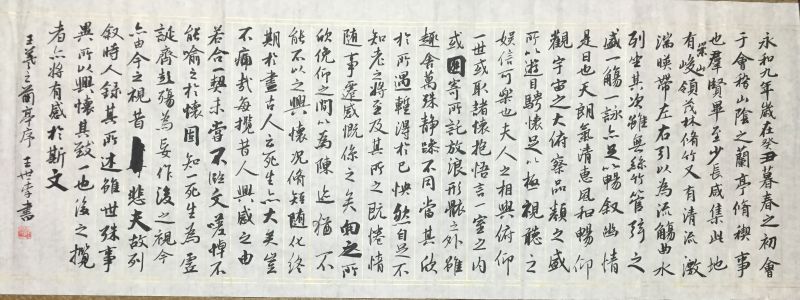 永和九年歲在癸丑暮春之初會
于會稽山陰之蘭亭脩禊事
也群賢畢至少長咸集此地
有崇山峻領茂林脩竹又有清流激
湍暎帶左右引以為流觴曲水
列坐其次雖無絲竹管弦之
盛一觴一詠亦足以暢叙幽情
是日也天朗氣清惠風和暢仰
觀宇宙之大俯察品類之盛
所以遊目騁懷足以極視聽之
娛信可樂也夫人之相與俯仰
一世或取諸懷抱悟言一室之內
或因寄所託放浪形骸之外雖
趣舍萬殊靜躁不同當其欣
於所遇輕得於己怏然自足不
知老之將至及其所之既惓情
隨事遷感慨係之矣向之所
欣俛仰之間以為陳迹猶不
能不以之興懷況脩短隨化終
期於盡古人云死生亦大矣豈
不痛哉每攬昔人興感之由
若合一契未嘗不臨文嗟悼不
能喻之於懷固知一死生為虛
誕齊彭殤為妄作後之視今
亦由今之視昔悲夫故列
叙時人錄其所述雖世殊事
異所以興懷其致一也後之攬
者亦將有感於斯文
王羲之蘭亭序 王世書